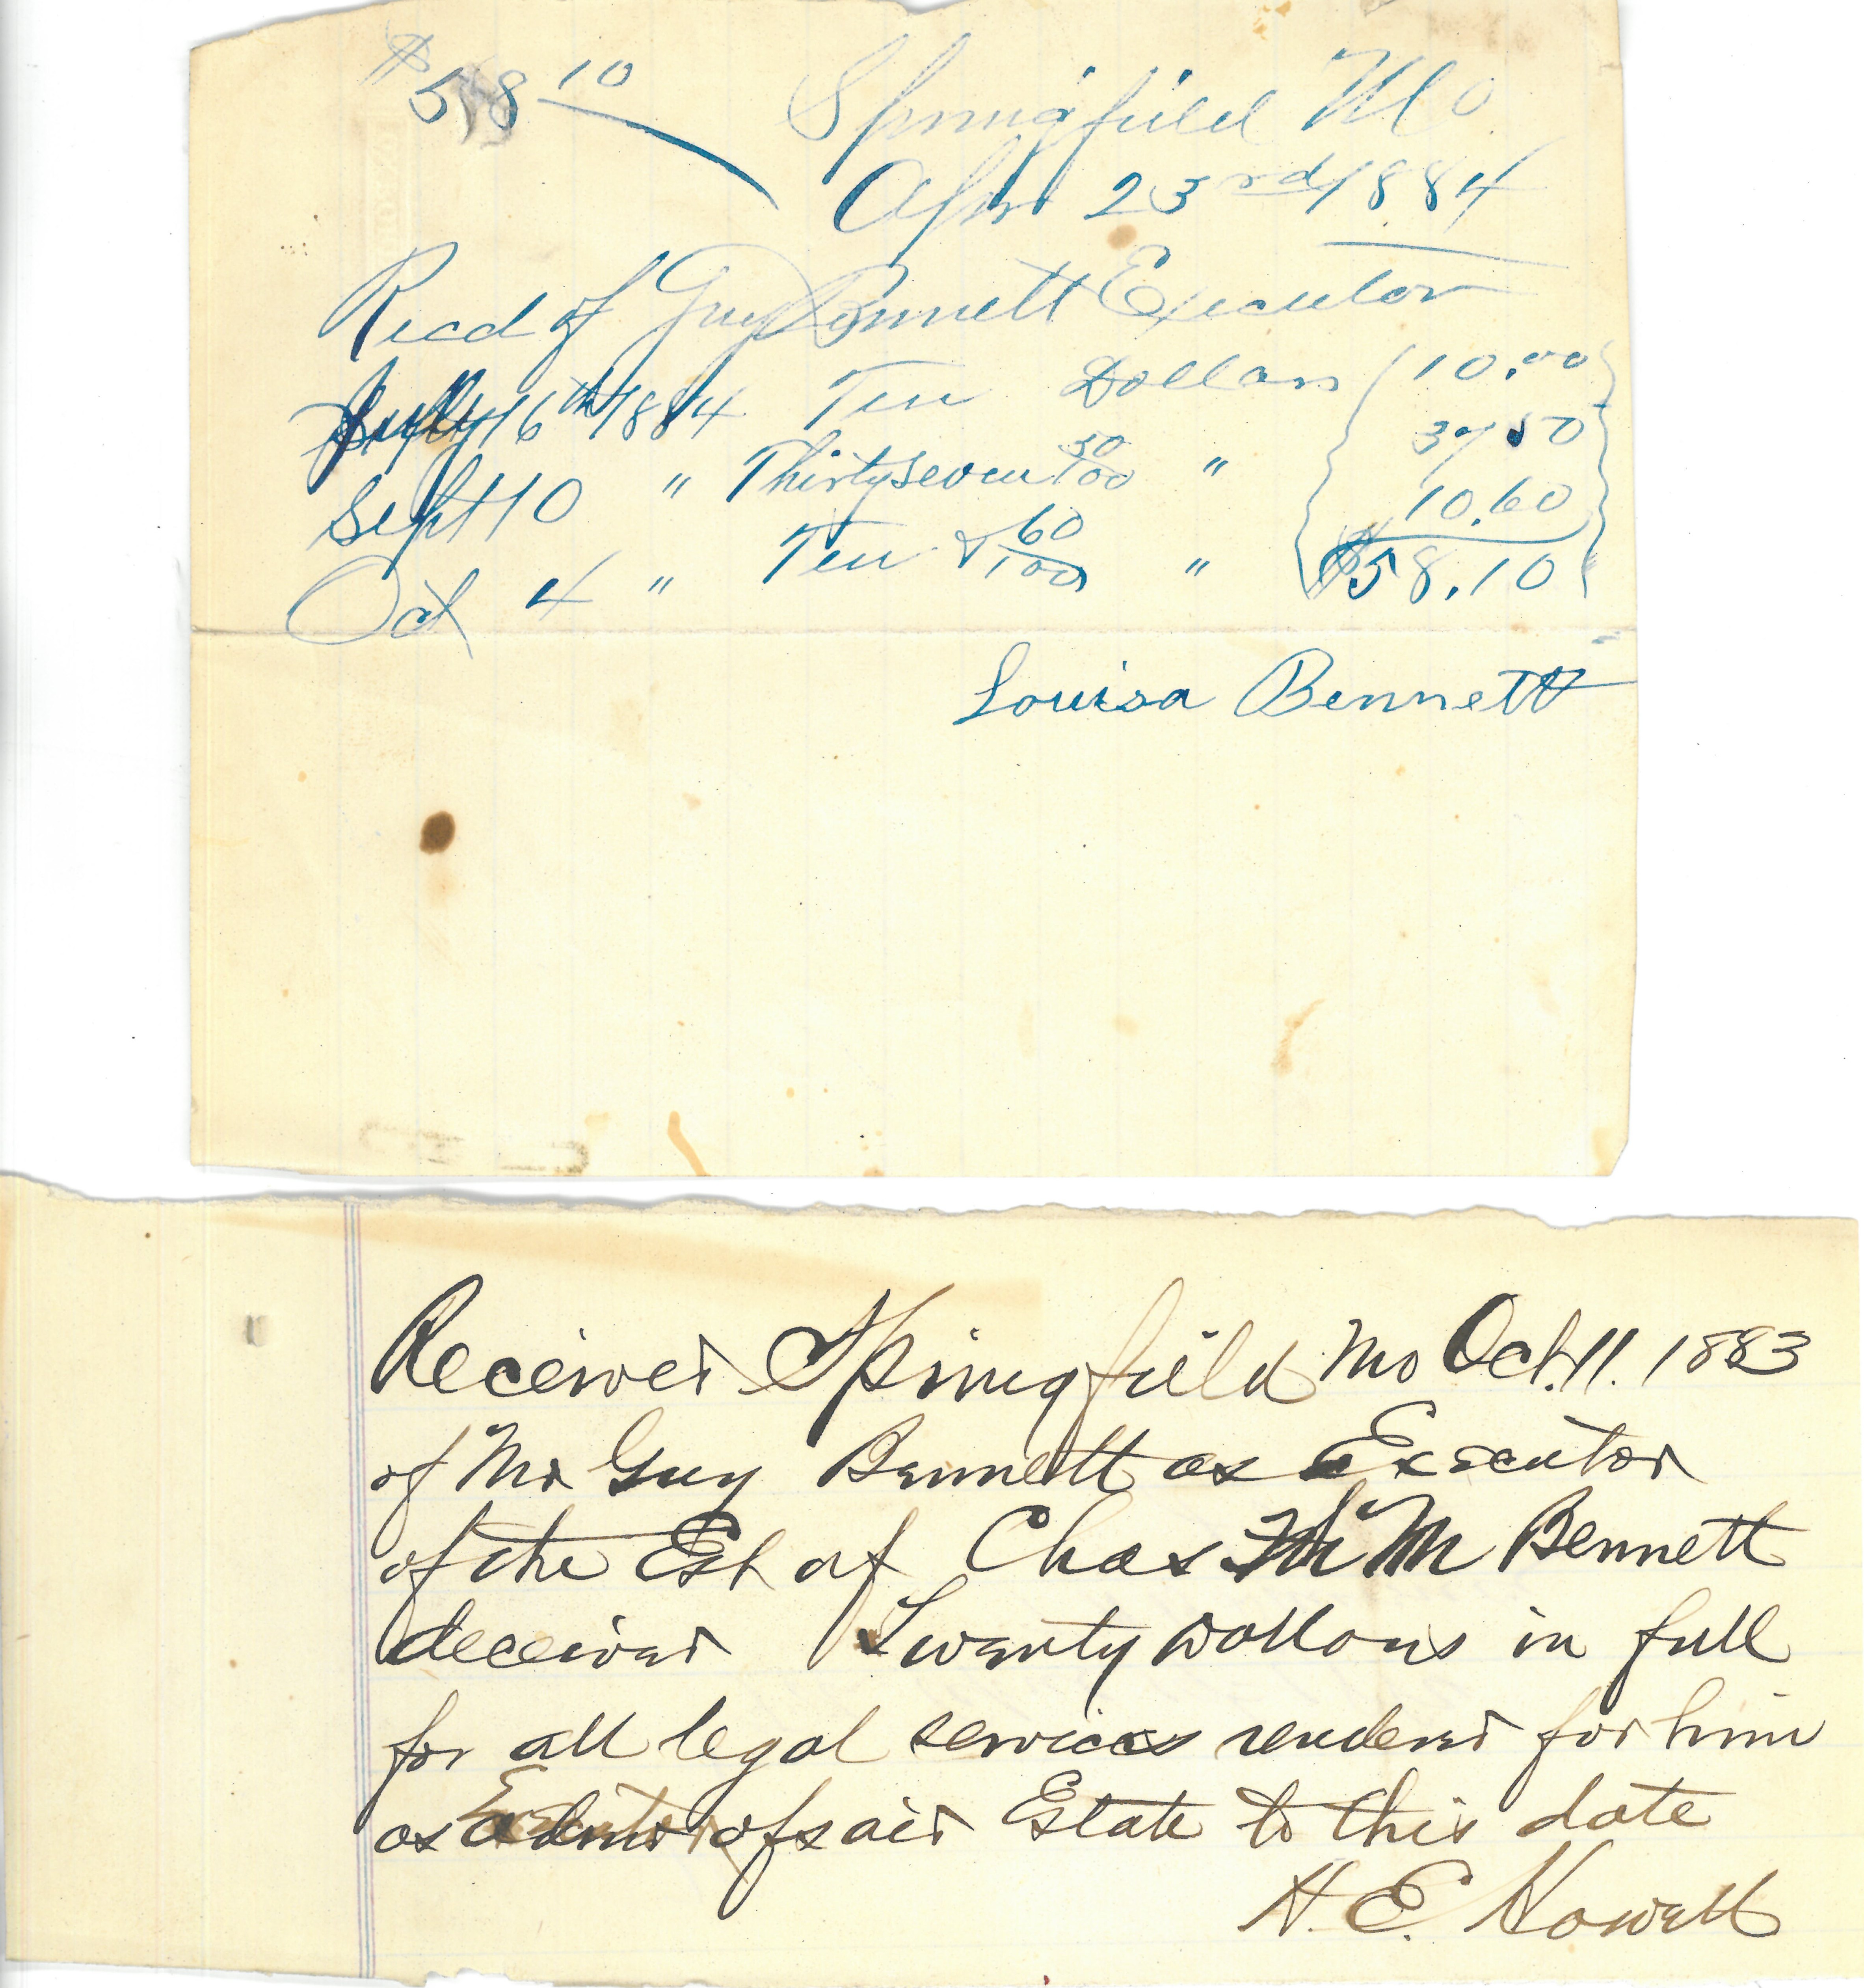 $58 10 Springfield Mo
Apr 23rd 1884
Recd of Guy Bennett Executor
July 16th 1884 Ten Dollars 10.00
Sept 10 " Thirty seven 50/100 " 37.50
Oct 4 " Ten & 60/100 " 10.60
$58.10
Louisa Bennett
Received Springfield Mo Oct. 11. 1883
of Mr Guy Bennett as Executor
of the Est of Chas M Bennett
deceased Twenty Dollars in full
for all legal services rendered for him
as Executor of said Estate to this date
H. E. Howell